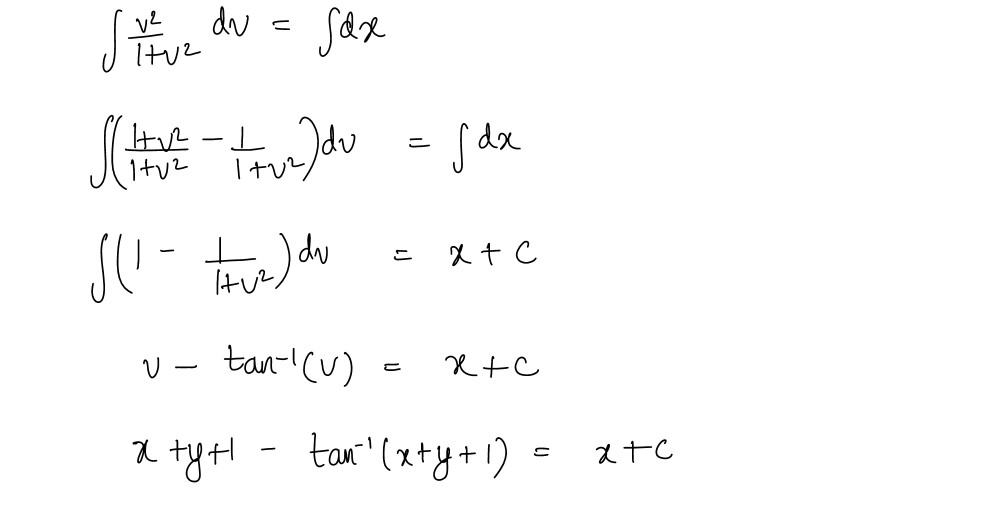 ∫ v²/(1+v²) dv = ∫dx
∫((1+v²)/(1+v²) − 1/(1+v²))dv = ∫dx
∫(1 − 1/(1+v²))dv = x + c
v − tan⁻¹(v) = x+c
x+y+1 − tan⁻¹(x+y+1) = x+c